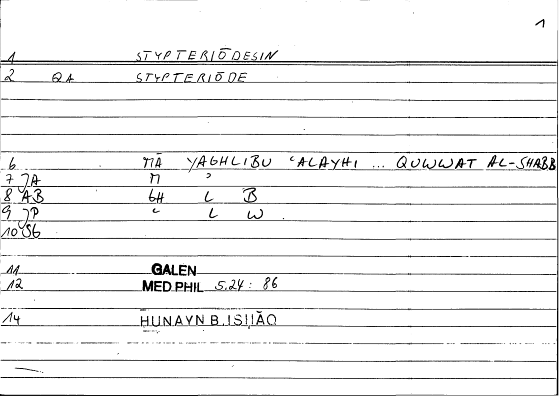 1
1 STYPTERIŌDESIN
2 QA STYPTERIŌDE
6 MĀ YAGHLIBU ʿALAYHI ... QUWWAT AL-SHABB
7 JA M ʾ
8 AB GH L B
9 JP ʿ L W
10 SG
11 GALEN
12 MED PHIL 5.24: 86
14 HUNAYN B. ISḤĀQ